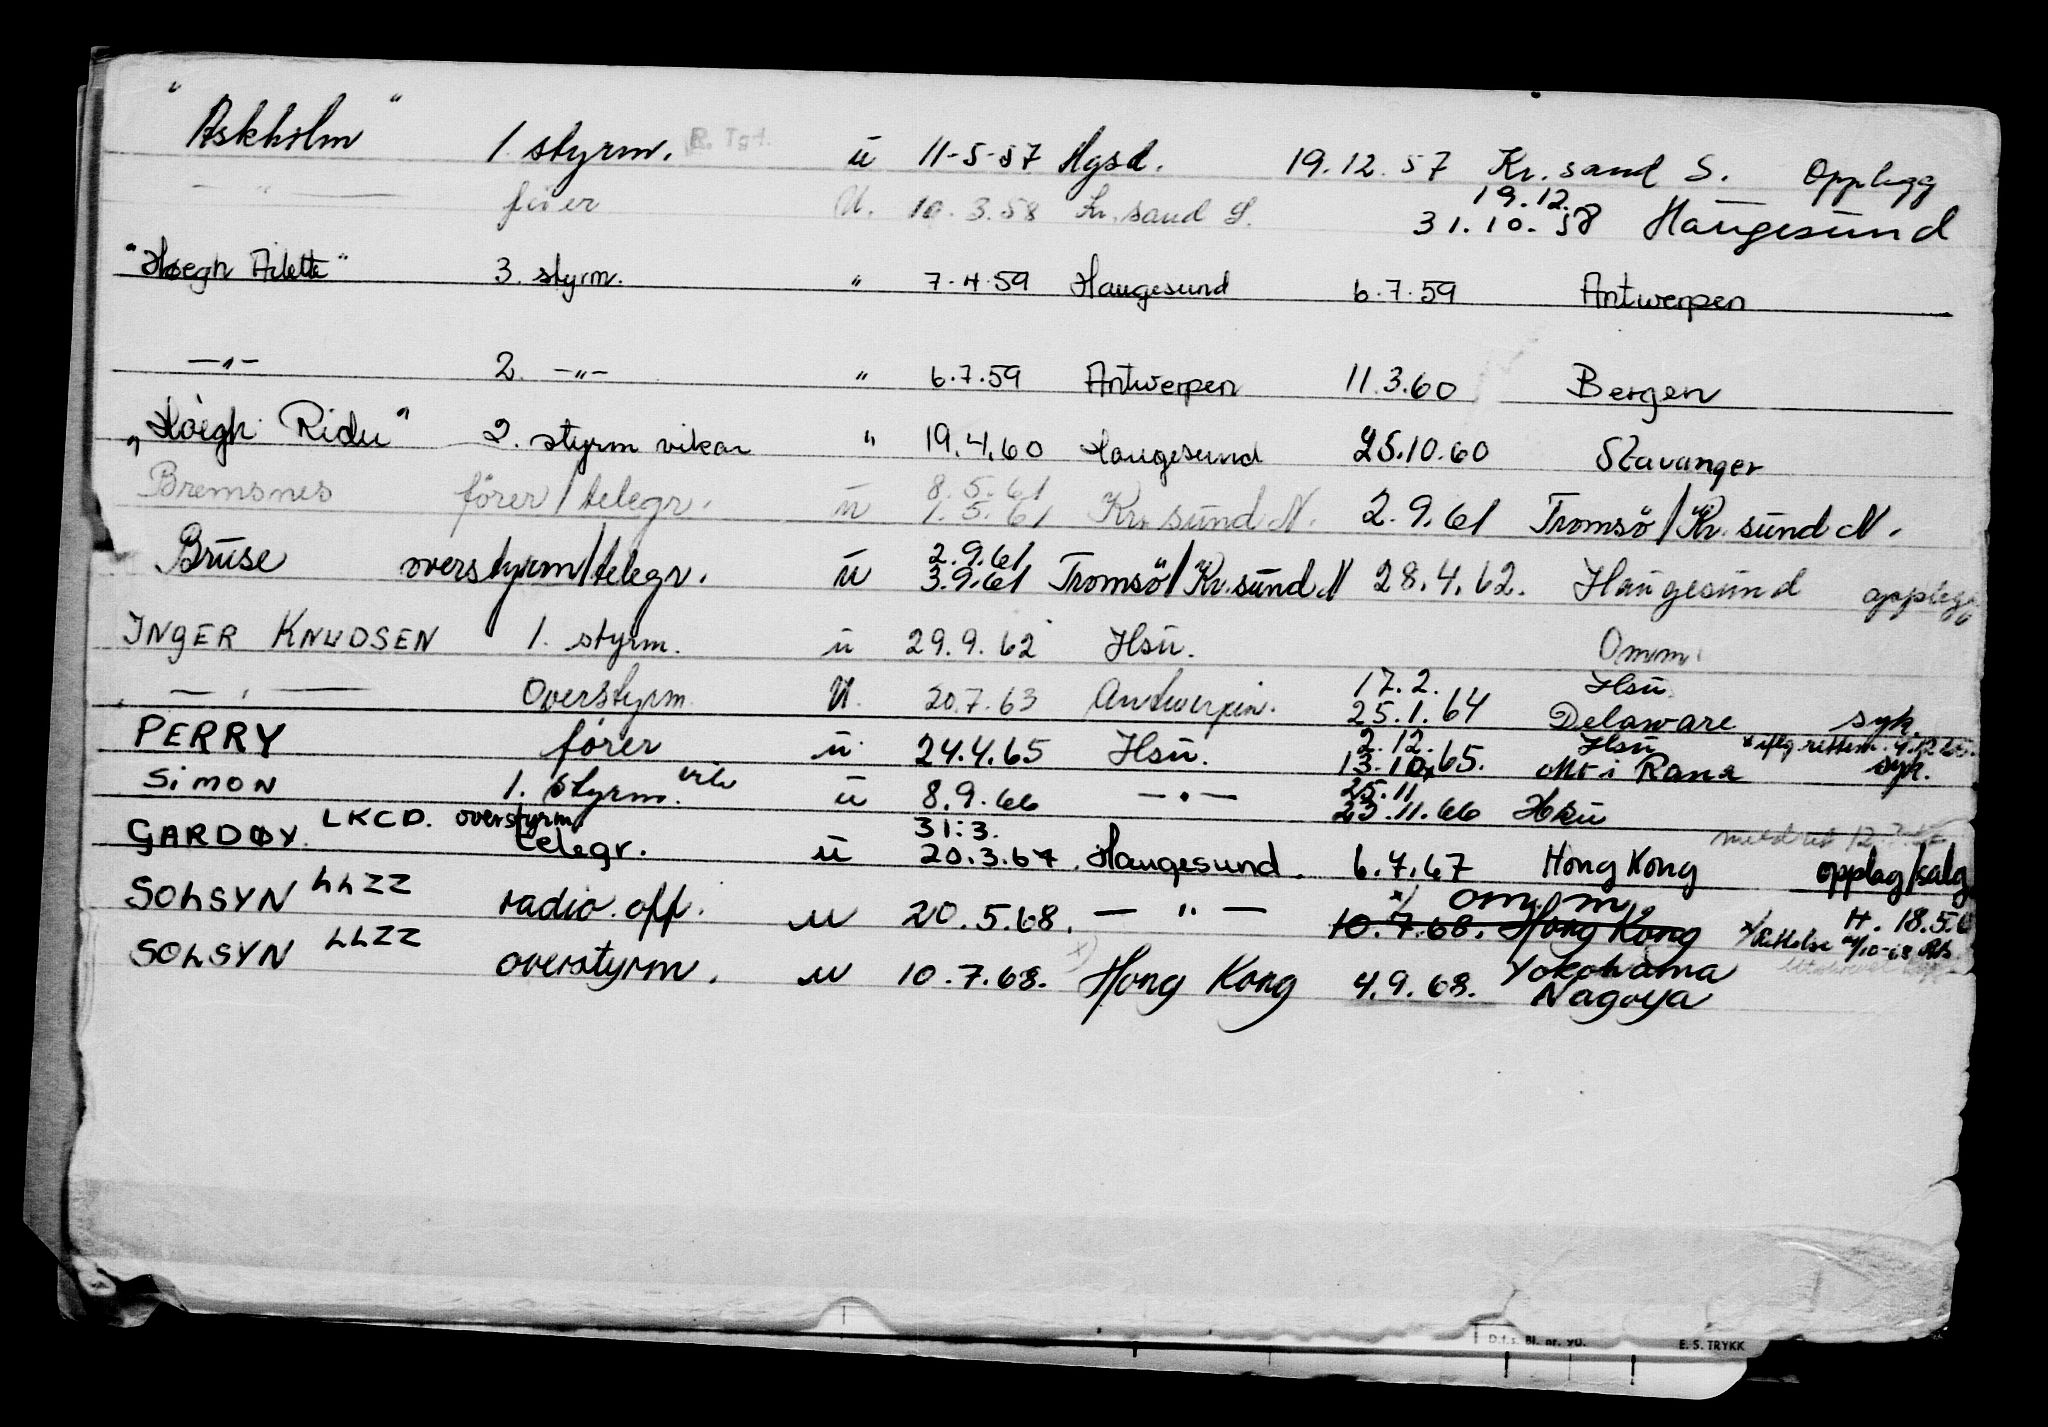 "Askholm" 1. styrm. R. Tgt. ü 11-5-57 Hgsd. 19.12.57 Kr.sand S. Opplegg
— " — fører ü. 10.3.58 Kr.sand S. 19.12. 31.10.58 Haugesünd
"Høegh Ailette" 3. styrm. " 7.4.59 Haugesund 6.7.59 Antwerpen
—"— 2. —"— " 6.7.59 Antwerpen 11.3.60 Bergen
"Höegh Ridu" 2. styrm vikar " 19.4.60 Haugesund 25.10.60 Stavanger
Bremsnes förer/telegr. ü 8.5.61 1.5.61 Kr. sünd N. 2.9.61 Tromsö/Kr. sünd N.
Brüse overstyrm/telegr. ü 2.9.61 3.9.61 Tromsö/Kr.sünd N 28.4.62. Haugesünd opplegg
INGER KNUDSEN 1. styrm. ü 29.9.62 Hsü. Omm.
— " — Overstyrm. ü. 20.7.63 Antwerpen. 17.2. 25.1.64 Hsü. Delaware syk.
PERRY fører ü 24.4.65 Hsü. 2.12. 13.10x65. Hsü Mo i Rana x iflg. rettem. 4.12.65. syk.
SIMON 1. styrm. vik ü 8.9.66 — " — 25.11 23.11.66 Hsü
GARDØY. LKCD. overstyrm telegr. ü 31.3. 20.3.67. Haugesund. 6.7.67 Hong Kong opplag/salg
SOLSYN LLZZ radio.off. ü 20.5.68. — " — x) omm. 10.7.68. Hong Kong H. 18.5.6 x/Rettelse
SOLSYN LLZZ overstyrm. ü 10.7.68. x) Hong Kong 4.9.68. Yokohama Nagoya
D.f.s. Bl. nr. 90. E. S. TRYKK